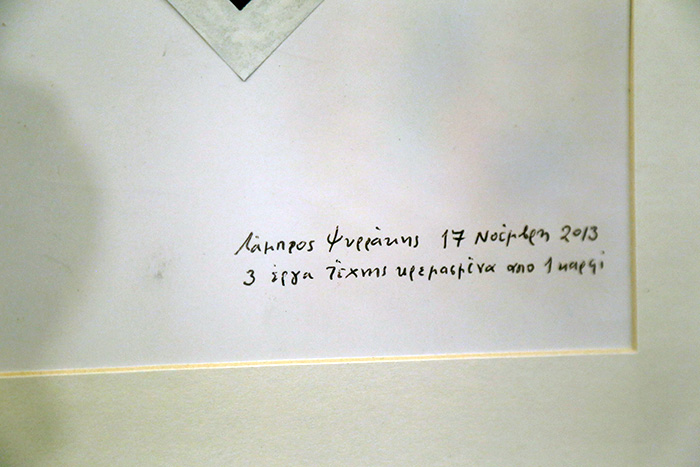 Λάμπρος Ψυρράκης 17 Νοέμβρη 2013
3 έργα τέχνης κρεμασμένα απο 1 καρφί